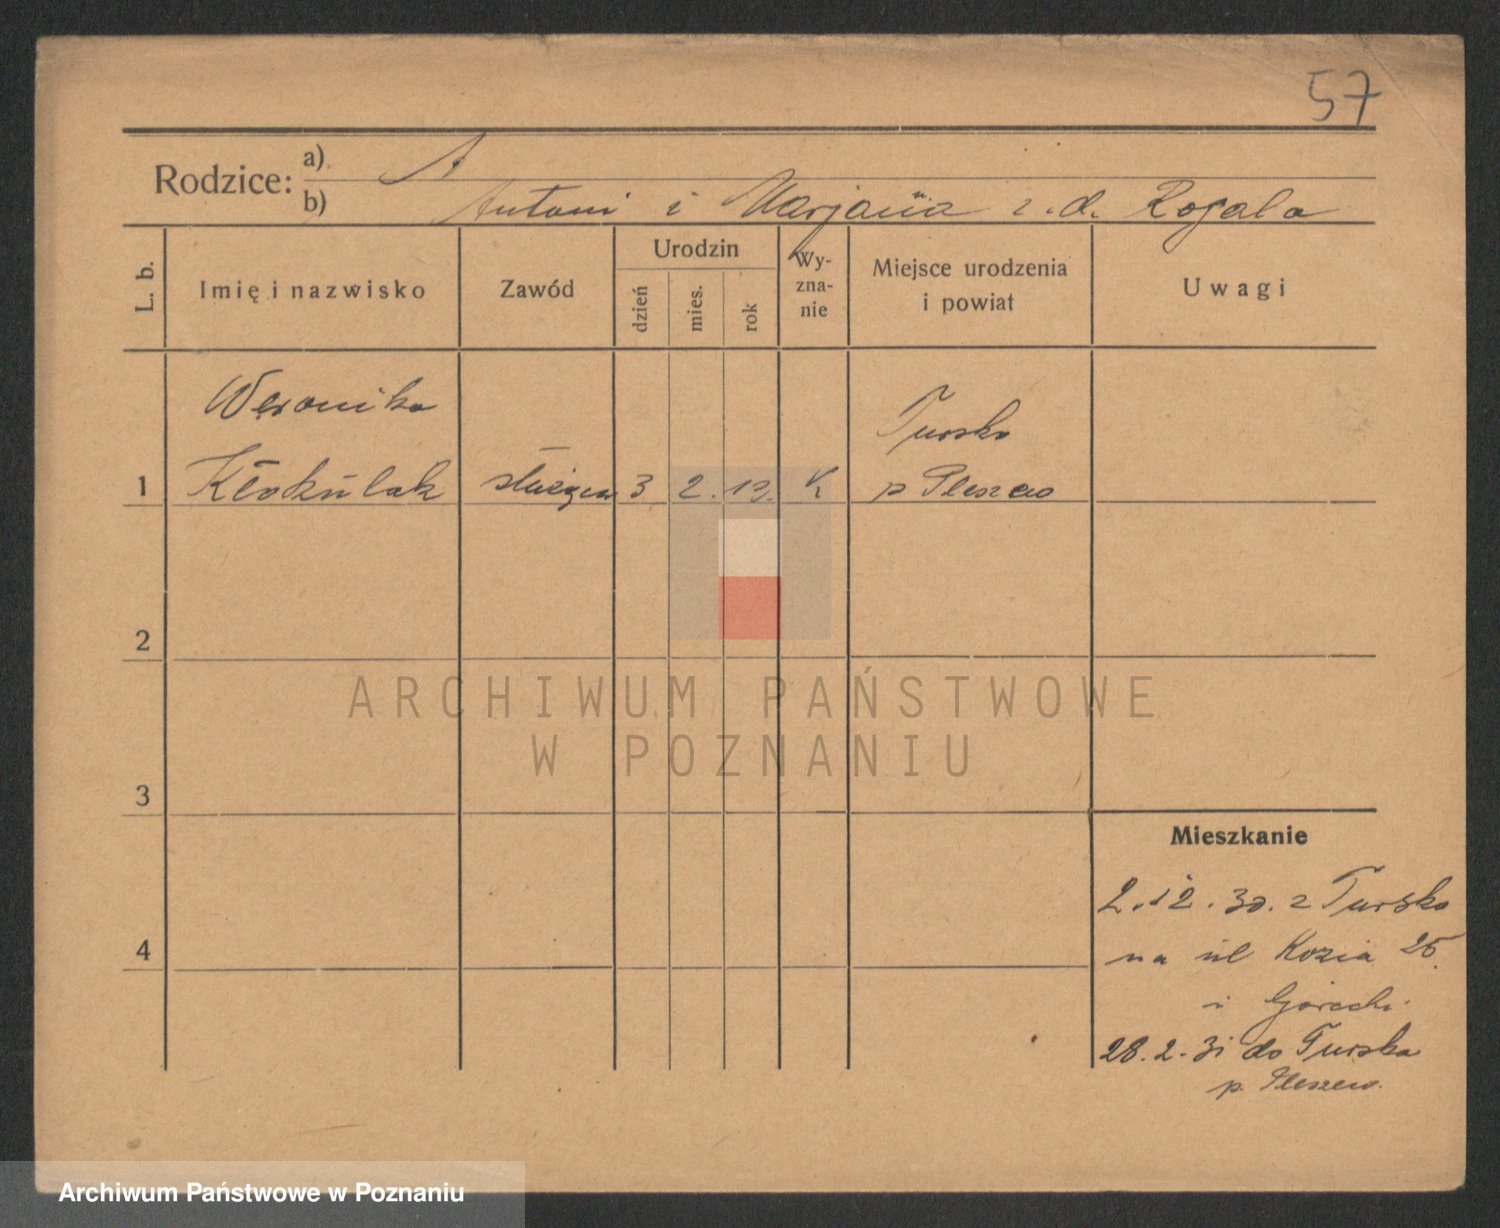 57
Rodzice: a)
b) Antoni i Marjanna z. d. Rogala
L. b.
Imię i nazwisko
Zawód
Urodzin
dzień
mies.
rok
Wy-
zna-
nie
Miejsce urodzenia
i powiat
Uwagi
Weronika
Tursko
1 Kłokulak służąca 3 2. 13. K p Pleszew
2
3
4
ARCHIWUM PAŃSTWOWE
W POZNANIU
Mieszkanie
2.12.30. z Tursko
na ul Kozia 25.
Górecki
28.2.31 do Turska
p. Pleszew.
Archiwum Państwowe w Poznaniu